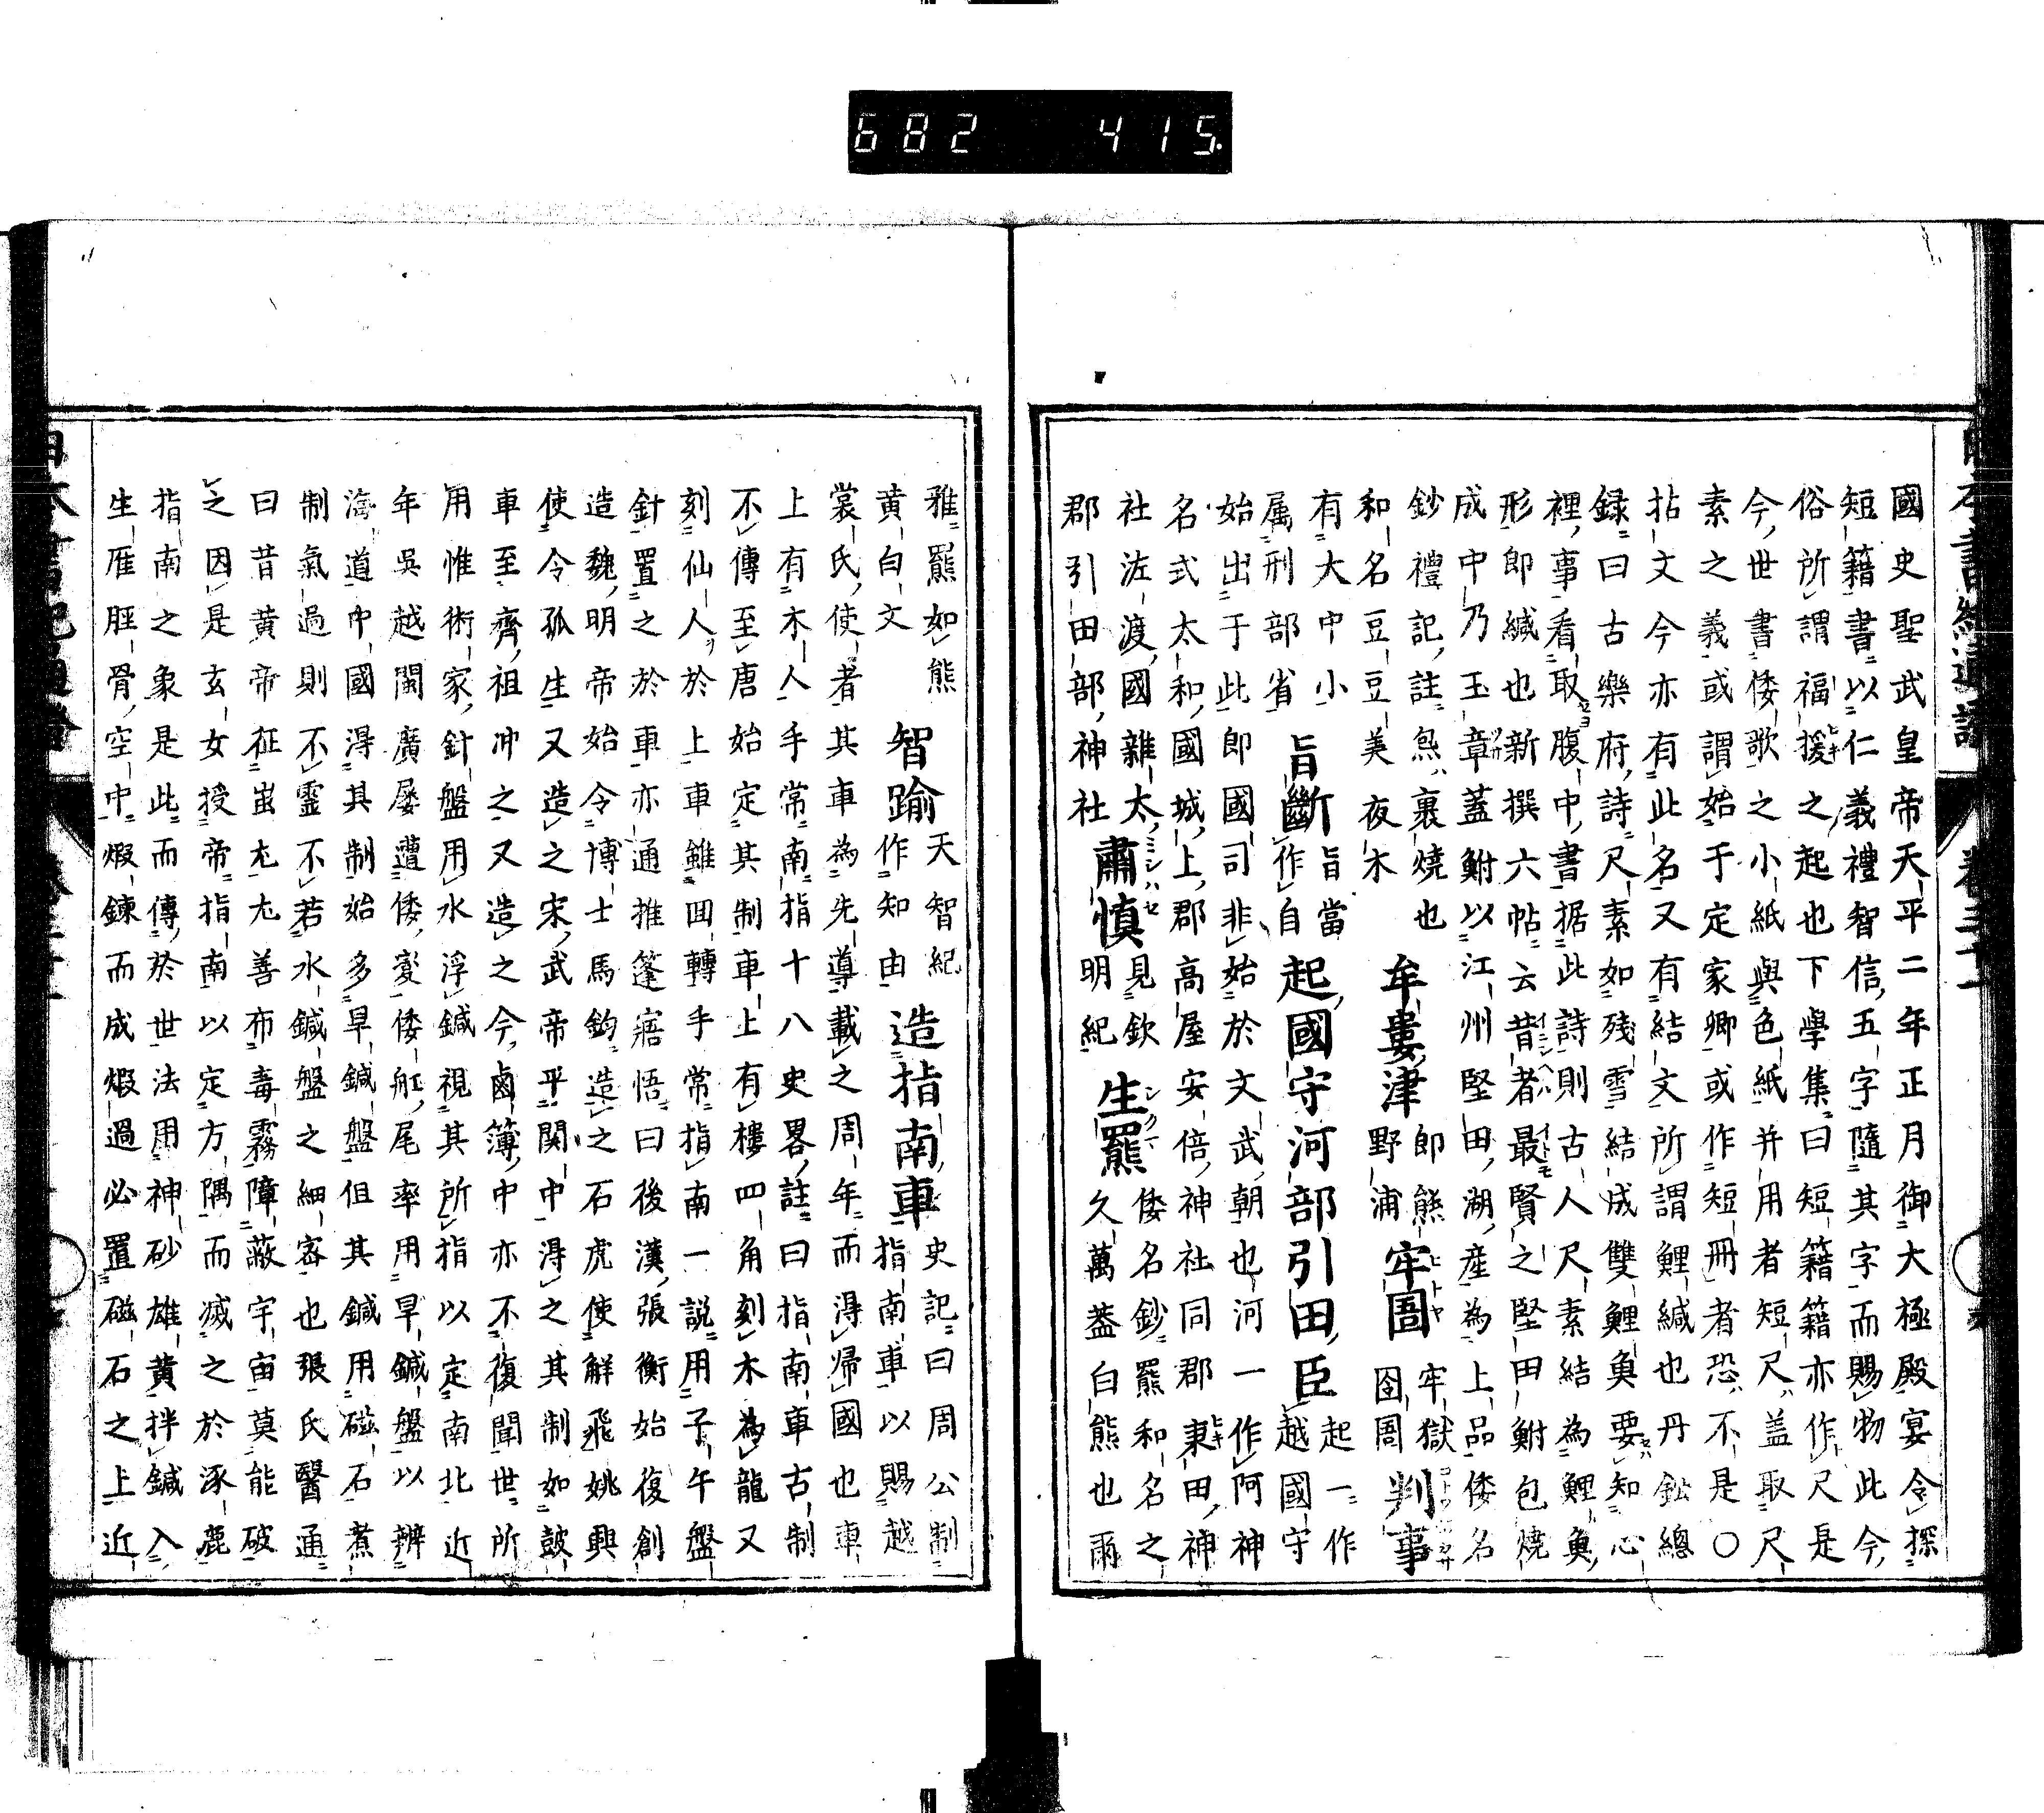 682 415.
國史聖武皇帝天平二年正月御大極殿宴令探
短籍書以仁義禮智信五字隨其字而賜物此今
俗所謂福援之起也下學集曰短籍籍亦作尺是
今世書倭歌之小紙與色紙并用者短尺盖取尺
素之義或謂始于定家卿或作短冊者恐不是〇
拈文今亦有此名又有結文所謂鯉緘也丹鉛總
録曰古樂府詩尺素如殘雪結成雙鯉魚要知心
裡事看取腹中書据此詩則古人尺素結為鯉魚
形即緘也新撰六帖云昔者最賢之堅田鮒包燒
成中乃玉章蓋鮒以江州堅田湖産為上品倭名
鈔禮記註炰裹燒也
和名豆豆美夜木
牟婁津
郎熊
野浦
牢圄
牢獄
囹圄
判事
有大中小
属刑部省
旨斷
旨當
作自
起國守河部引田臣
起一作
越國守
始出于此即國司非始於文武朝也河一作阿神
名式太和國城上郡高屋安倍神社同郡東田神
社佐渡國雜太
郡引田部神社
肅慎
見欽
明紀
生羆
倭名鈔羆和名之
久萬葢白熊也爾
雅羆如熊
黄白文
智踰
天智紀
作知由
造指南車
史記曰周公制
指南車以賜越
裳氏使者其車為先導載之周年而得帰國也車
上有木人手常南指十八史畧註曰指南車古制
不傳至唐始定其制車上有樓四角刻木為龍又
刻仙人於上車錐囬轉手常指南一説用子午盤
針置之於車亦通推篷寤悟曰後漢張衡始復創
造魏明帝始令博士馬鈞造之石虎使解飛姚興
使令孤生又造之宋武帝平関中得之其制如鼓
車至齊祖冲之又造之今鹵簿中亦不復聞世所
用惟術家針盤用水浮鍼視其所指以定南北近
年吳越閩廣屡遭倭変倭舩尾率用早鍼盤以辨
海道中國得其制始多旱鍼盤但其鍼用磁石煮
制氣過則不霊不若水鍼盤之細宻也張氏醫通
曰昔黄帝征蚩尤尤善布毒霧障蔽宇宙莫能破
之因是玄女授帝指南以定方隅而滅之於涿鹿
指南之象是此而傳於世法用神砂雄黄拌鍼入
生雁脛骨空中煅鍊而成煅過必置磁石之上近